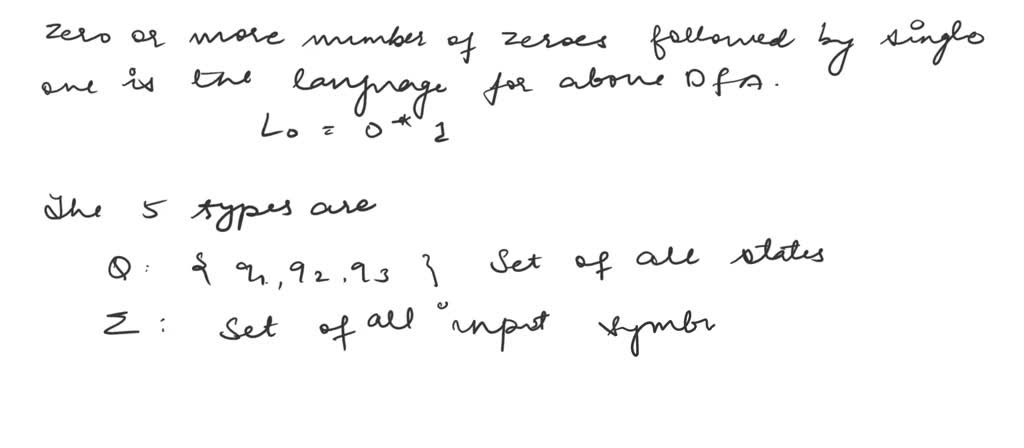 zero or more number of zeroes followed by single
one is the language for above DFA.
L₀ = 0* 1
The 5 types are
Q: { q1, q2, q3 } Set of all states
Σ: Set of all input symb